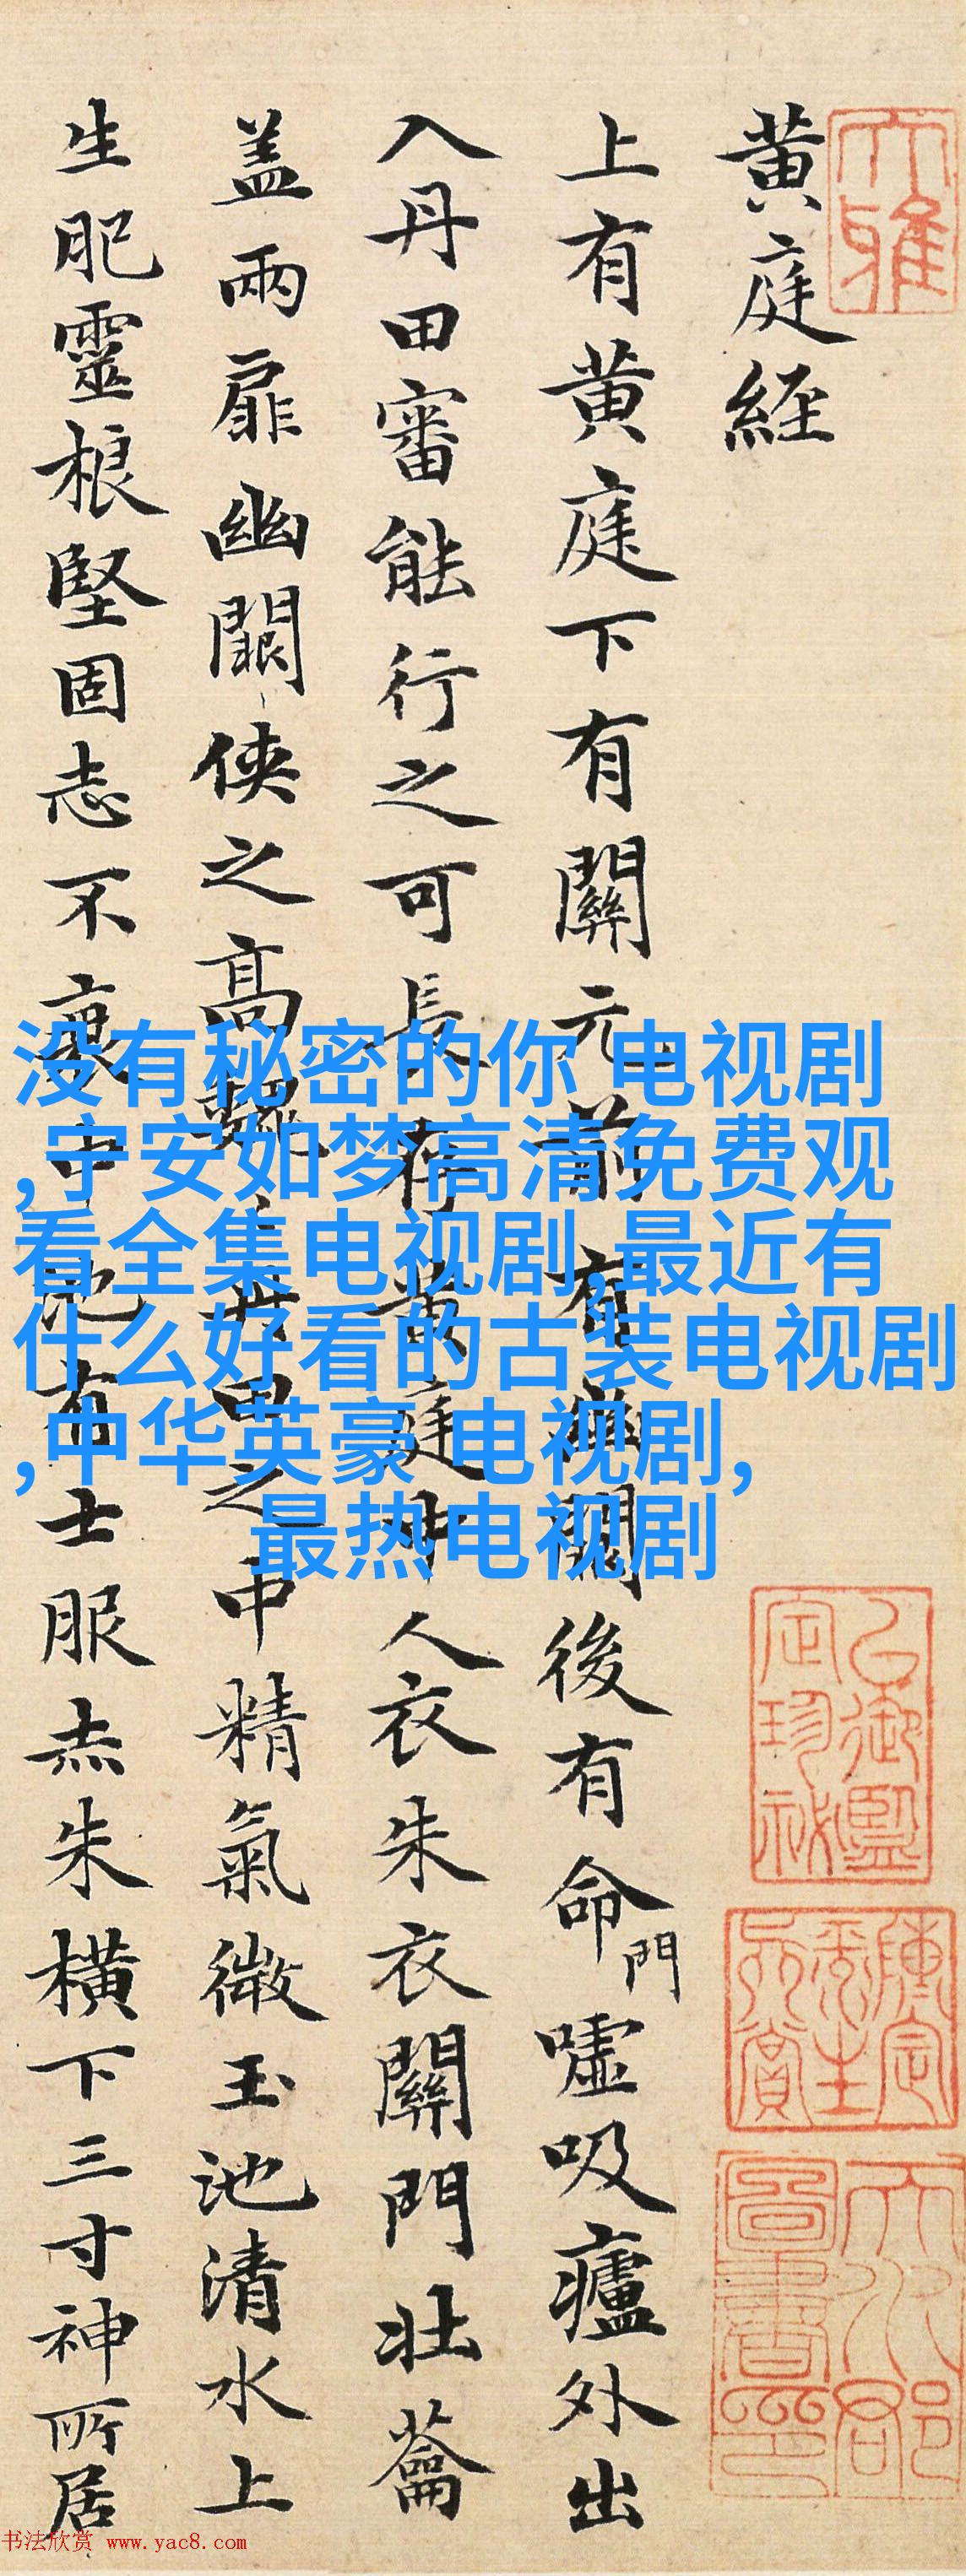 黄庭经
上有黄庭下有關元前有幽闕後有命門嘘吸廬外出
入丹田審能行之可長存黄庭中人衣朱衣關門壮蘥
盖兩扉幽闕侠之高巍丹田之中精氣微玉池清水上
生肥靈根堅固志不衰中池有士服赤朱横下三寸神所居
没有秘密的你 电视剧
,宁安如梦高清免费观
看全集电视剧,最近有
什么好看的古装电视剧
,中华英豪 电视剧,
最热电视剧
书法欣赏 www.yac8.com